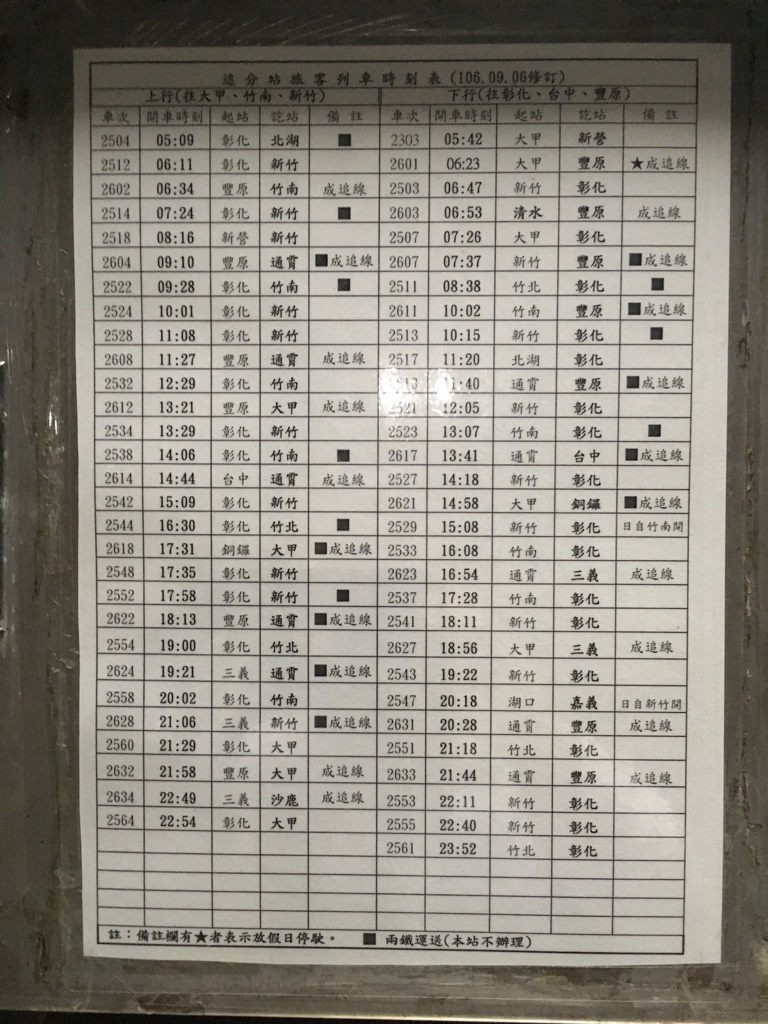 追分站旅客列車時刻表(106.09.06修訂)
上行(往大甲、竹南、新竹) 下行(往彰化、台中、豐原)
車次 開車時刻 起站 訖站 備註 車次 開車時刻 起站 訖站 備註
2504 05:09 彰化 北湖 ■ 2303 05:42 大甲 新營
2512 06:11 彰化 新竹 2601 06:23 大甲 豐原 ★成追線
2602 06:34 豐原 竹南 成追線 2503 06:47 新竹 彰化
2514 07:24 彰化 新竹 ■ 2603 06:53 清水 豐原 成追線
2518 08:16 新營 新竹 2507 07:26 大甲 彰化
2604 09:10 豐原 通霄 ■成追線 2607 07:37 新竹 豐原 ■成追線
2522 09:28 彰化 竹南 ■ 2511 08:38 竹北 彰化 ■
2524 10:01 彰化 新竹 2611 10:02 竹南 豐原 ■成追線
2528 11:08 彰化 新竹 2513 10:15 新竹 彰化 ■
2608 11:27 豐原 通霄 成追線 2517 11:20 北湖 彰化
2532 12:29 彰化 竹南 2613 11:40 通霄 豐原 ■成追線
2612 13:21 豐原 大甲 成追線 2521 12:05 新竹 彰化
2534 13:29 彰化 新竹 2523 13:07 竹南 彰化 ■
2538 14:06 彰化 竹南 ■ 2617 13:41 通霄 台中 ■成追線
2614 14:44 台中 通霄 成追線 2527 14:18 新竹 彰化
2542 15:09 彰化 新竹 2621 14:58 大甲 銅鑼 ■成追線
2544 16:30 彰化 竹北 ■ 2529 15:08 新竹 彰化 日自竹南開
2618 17:31 銅鑼 大甲 ■成追線 2533 16:08 竹南 彰化
2548 17:35 彰化 新竹 2623 16:54 通霄 三義 成追線
2552 17:58 彰化 新竹 ■ 2537 17:28 竹南 彰化
2622 18:13 豐原 通霄 ■成追線 2541 18:11 新竹 彰化
2554 19:00 彰化 竹北 2627 18:56 大甲 三義 成追線
2624 19:21 三義 通霄 ■成追線 2543 19:22 新竹 彰化
2558 20:02 彰化 竹南 2547 20:18 湖口 嘉義 日自新竹開
2628 21:06 三義 新竹 ■成追線 2631 20:28 通霄 豐原 成追線
2560 21:29 彰化 大甲 2551 21:18 竹北 彰化
2632 21:58 豐原 大甲 成追線 2633 21:44 通霄 豐原 成追線
2634 22:49 三義 沙鹿 成追線 2553 22:11 新竹 彰化
2564 22:54 彰化 大甲 2555 22:40 新竹 彰化
2561 23:52 竹北 彰化
註：備註欄有★者表示放假日停駛。 ■ 兩鐵運送(本站不辦理)